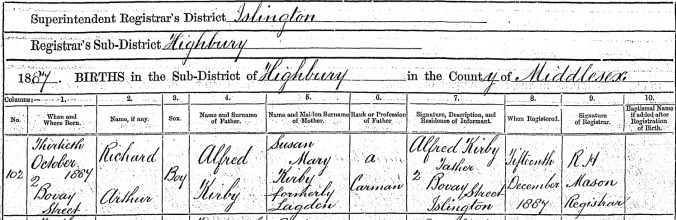 Superintendent Registrar's District Islington
Registrar's Sub-District Highbury
1887. BIRTHS in the Sub-District of Highbury in the County of Middlesex
Columns:— 1. 2. 3. 4. 5. 6. 7. 8. 9. 10.
No. When and Where Born. Name, if any. Sex. Name and Surname of Father. Name and Maiden Surname of Mother. Rank or Profession of Father Signature, Description, and Residence of Informant. When Registered. Signature of Registrar. Baptismal Name if added after Registration of Birth.
102 Thirtieth October 1887 2 Bovay Street
Richard Arthur
Boy
Alfred Kirby
Susan Mary Kirby formerly Legdon
a Carman
Alfred Kirby Father 2 Bovay Street Islington
Fifteenth December 1887
R H Mason Registrar